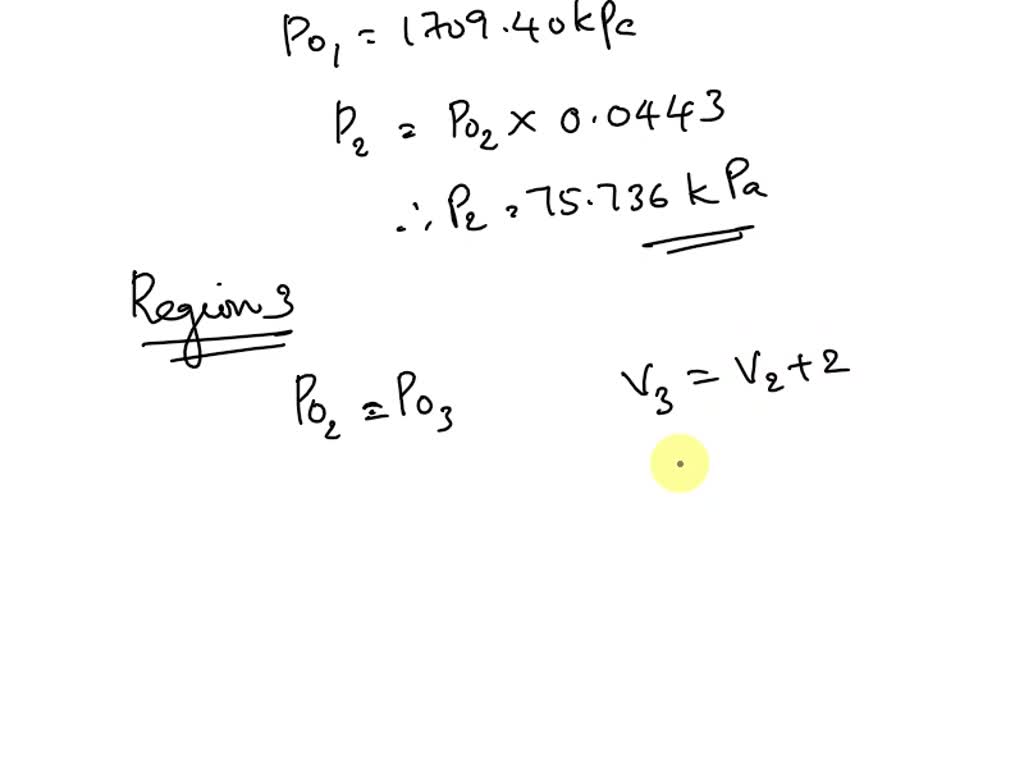 Po₁ = 1709.40kPa
P₂ = Po₂ × 0.0443
∴ P₂ = 75.736 kPa
Region 3
Po₂ = Po₃
V₃ = V₂ + 2